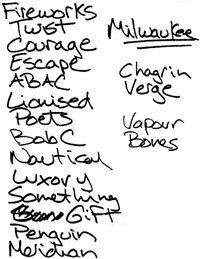 Fireworks
Twist
Courage
Escape
ABAC
Lionised
Poets
Bob C
Nautical
Luxory
Something
Gift
Penguin
Meridian
Milwaukee
Chagrin
Verge
Vapour
Bones